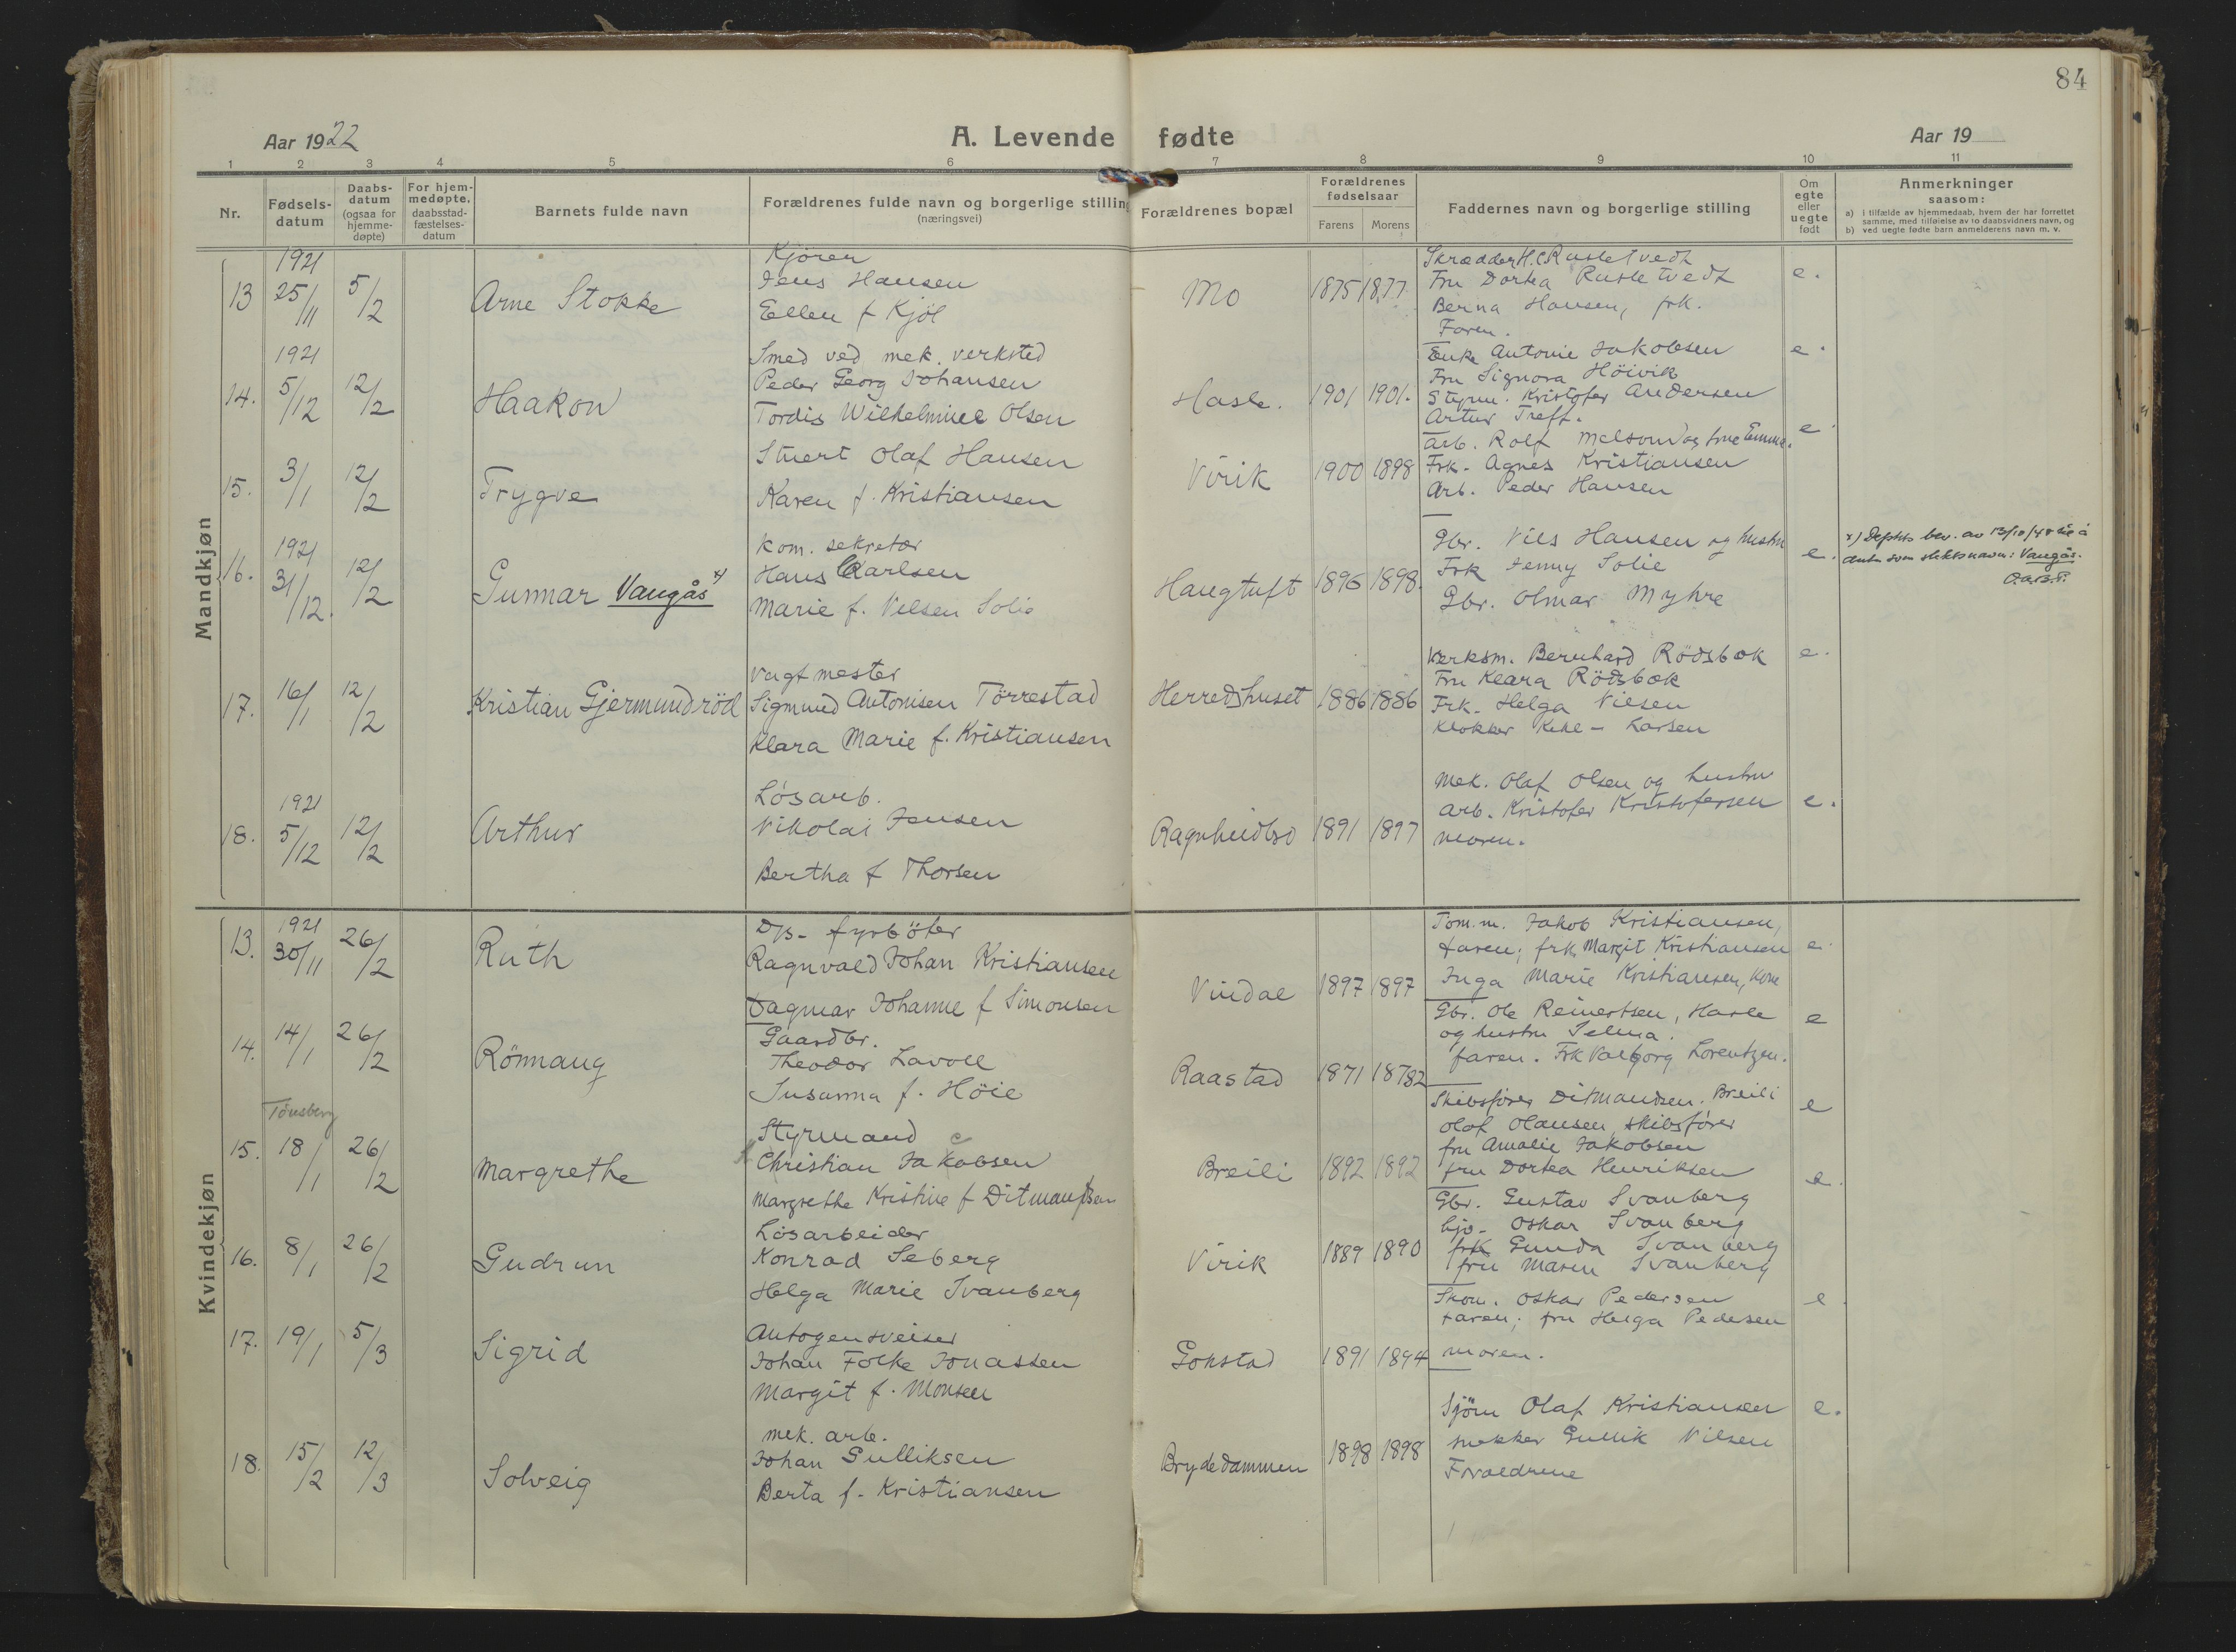 84
Aar 1922
A. Levende fødte
Aar 19
1 2 3 4 5 6 7 8 9 10 11
Nr.
Fødsels-
datum
Daabs-
datum
(ogsaa for
hjemme-
døpte)
For hjem-
medøpte.
daabsstad-
fæstelses-
datum
Barnets fulde navn
Forældrenes fulde navn og borgerlige stilling
(næringsvei)
Forældrenes bopæl
Forældrenes
fødselsaar
Farens Morens
Faddernes navn og borgerlige stilling
Om
egte
eller
uegte
født
Anmerkninger
saasom:
a) i tilfælde av hjemmedaab, hvem der har forrettet
samme, med tilføielse av to daabsvidners navn, og
b) ved uegte fødte barn anmelderens navn m. v.
Mandkjøn
13 1921 25/11 5/2 Arne Stokke
Kjörer
Jens Hansen
Ellen f Kjöl
Mo 1875 1877
Skrædder H.C. Rustetvedt
Fru Dortea Rustetvedt
Berna Hansen, frk.
Faren.
e.
14. 1921 5/12 12/2 Haakon
Smed ved mek. verksted
Peder Georg Johansen
Tordis Wilhelmine Olsen
Hasle. 1901 1901.
Enke Antonie Jakobsen
Fru Signora Höivik
Styrm. Kristofer Andersen
Artur Treff.
e.
15. 3/1 12/2 Trygve
Stuert Olaf Hansen
Karen f. Kristiansen
Virik 1900 1898
Arb. Rolf Melsom og frue Emma.
Frk. Agnes Kristiansen
Arb. Peder Hansen
e.
16. 1921 31/12. 12/2 Gunnar Vangås x)
Kom. sekretær
Hans Carlsen
Marie f. Nilsen Solie
Haugtuft 1896 1898.
Gbr. Nils Hansen og hustru
Frk Jenny Solie
Gbr. Olmar Myhre
e.
x) Depts bev. av 13/10/48 til å
anta som slektsnavn: Vangås.
17. 16/1 12/2 Kristian Gjermundröd
Vagtmester
Sigmund Antonisen Törrestad
Klara Marie f. Kristiansen
Herredshuset 1886 1886
Verksm. Bernhard Rödsbok
Fru Klara Rödsbok
Frk. Helga Nilsen
Klokker Larsen
e.
18. 1921 5/12 12/2 Arthur
Lösarb.
Nikolai Jensen
Bertha f Thorsen
Ragnhildbo 1891 1897
Mek. Olaf Olsen og hustru
Arb. Kristofer Kristofersen
Moren.
e.
Kvindekjøn
13. 1921 30/11 26/2 Ruth
D/s- fyrböter
Ragnvald Johan Kristiansen
Dagmar Johanne f Simonsen
Vindal 1897 1897
Töm.m. Jakob Kristiansen,
Faren; frk. Margit Kristiansen
Inga Marie Kristiansen, kone
e.
14. 14/1 26/2 Rönnaug
Gaardbr.
Theodor Lavoll
Susanna f. Höie
Raastad 1871 1882
Gbr. Ole Reinertsen, Hasle
og hustru Selma.
faren. Frk Valborg Lorentzen.
e
Tönsberg
15. 18/1 26/2 Margrethe
Styrmand
Christian Jacobsen
Margrethe Kristine f Ditmansen
Breili 1892 1892
Skibsförer Ditmandsen. Breili
Olaf Olausen, skibsförer
fru Amalie Jakobsen
fru Dortea Henriksen
e
16. 8/1 26/2 Gudrun
Lösarbeider
Konrad Seberg
Helga Marie Svanberg
Virik 1889 1890
Gbr. Gustav Svanberg
Oskar Svanberg
frk Gunda Svanberg
fru Maren Svanberg
e.
17. 19/1 5/3 Sigrid
Autogensveiser
Johan Folke Jonassen
Margit f. Monsen
Gokstad 1891 1894
Skom. Oskar Pedersen
Faren; fru Helga Pedersen
moren.
e
18. 15/2 12/3 Solveig
mek. arb.
Johan Gulliksen
Berta f. Kristiansen
Brydedammen 1898 1898
Sjöm Olaf Kristiansen
snekker Gullik Nilsen
Forældrene
e.